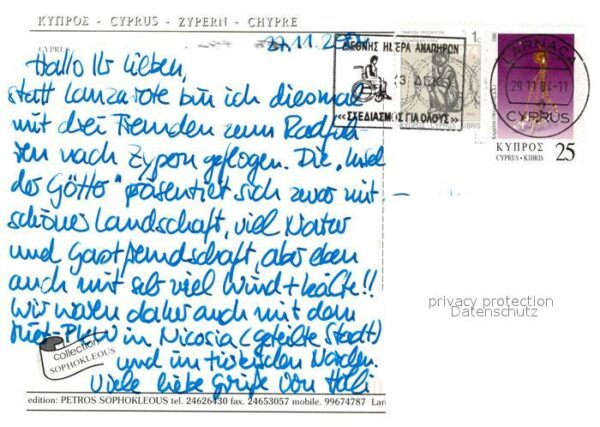 ΚΥΠΡΟΣ - CYPRUS - ZYPERN - CHYPRE
CYPRUS
27.11.2004
Hallo Ihr Lieben,
statt Lanzarote bin ich diesmal
mit drei Freunden zum Radfah
ren nach Zypern geflogen. Die „Insel
der Götter" präsentiert sich zwar mit
schöner Landschaft, viel Natur
und Gastfreundschaft, aber eben
auch mit sehr viel Wind + Kälte!!
Wir waren daher auch mit dem
Miet-PKW in Nicosia (geteilte Stadt)
und im türkischen Norden.
Viele liebe Grüße von
ΔΙΕΘΝΗΣ ΗΜΕΡΑ ΑΝΑΠΗΡΩΝ
(3 ΔΕΚ)
«ΣΧΕΔΙΑΣΜΟΣ ΓΙΑ ΟΛΟΥΣ»
1c
LARNACA
29 11 04-11
CYPRUS
ΚΥΠΡΟΣ
CYPRUS·KIBRIS
25
privacy protection
Datenschutz
collection
SOPHOKLEOUS
edition: PETROS SOPHOKLEOUS tel. 24626430 fax. 24653057 mobile. 99674787